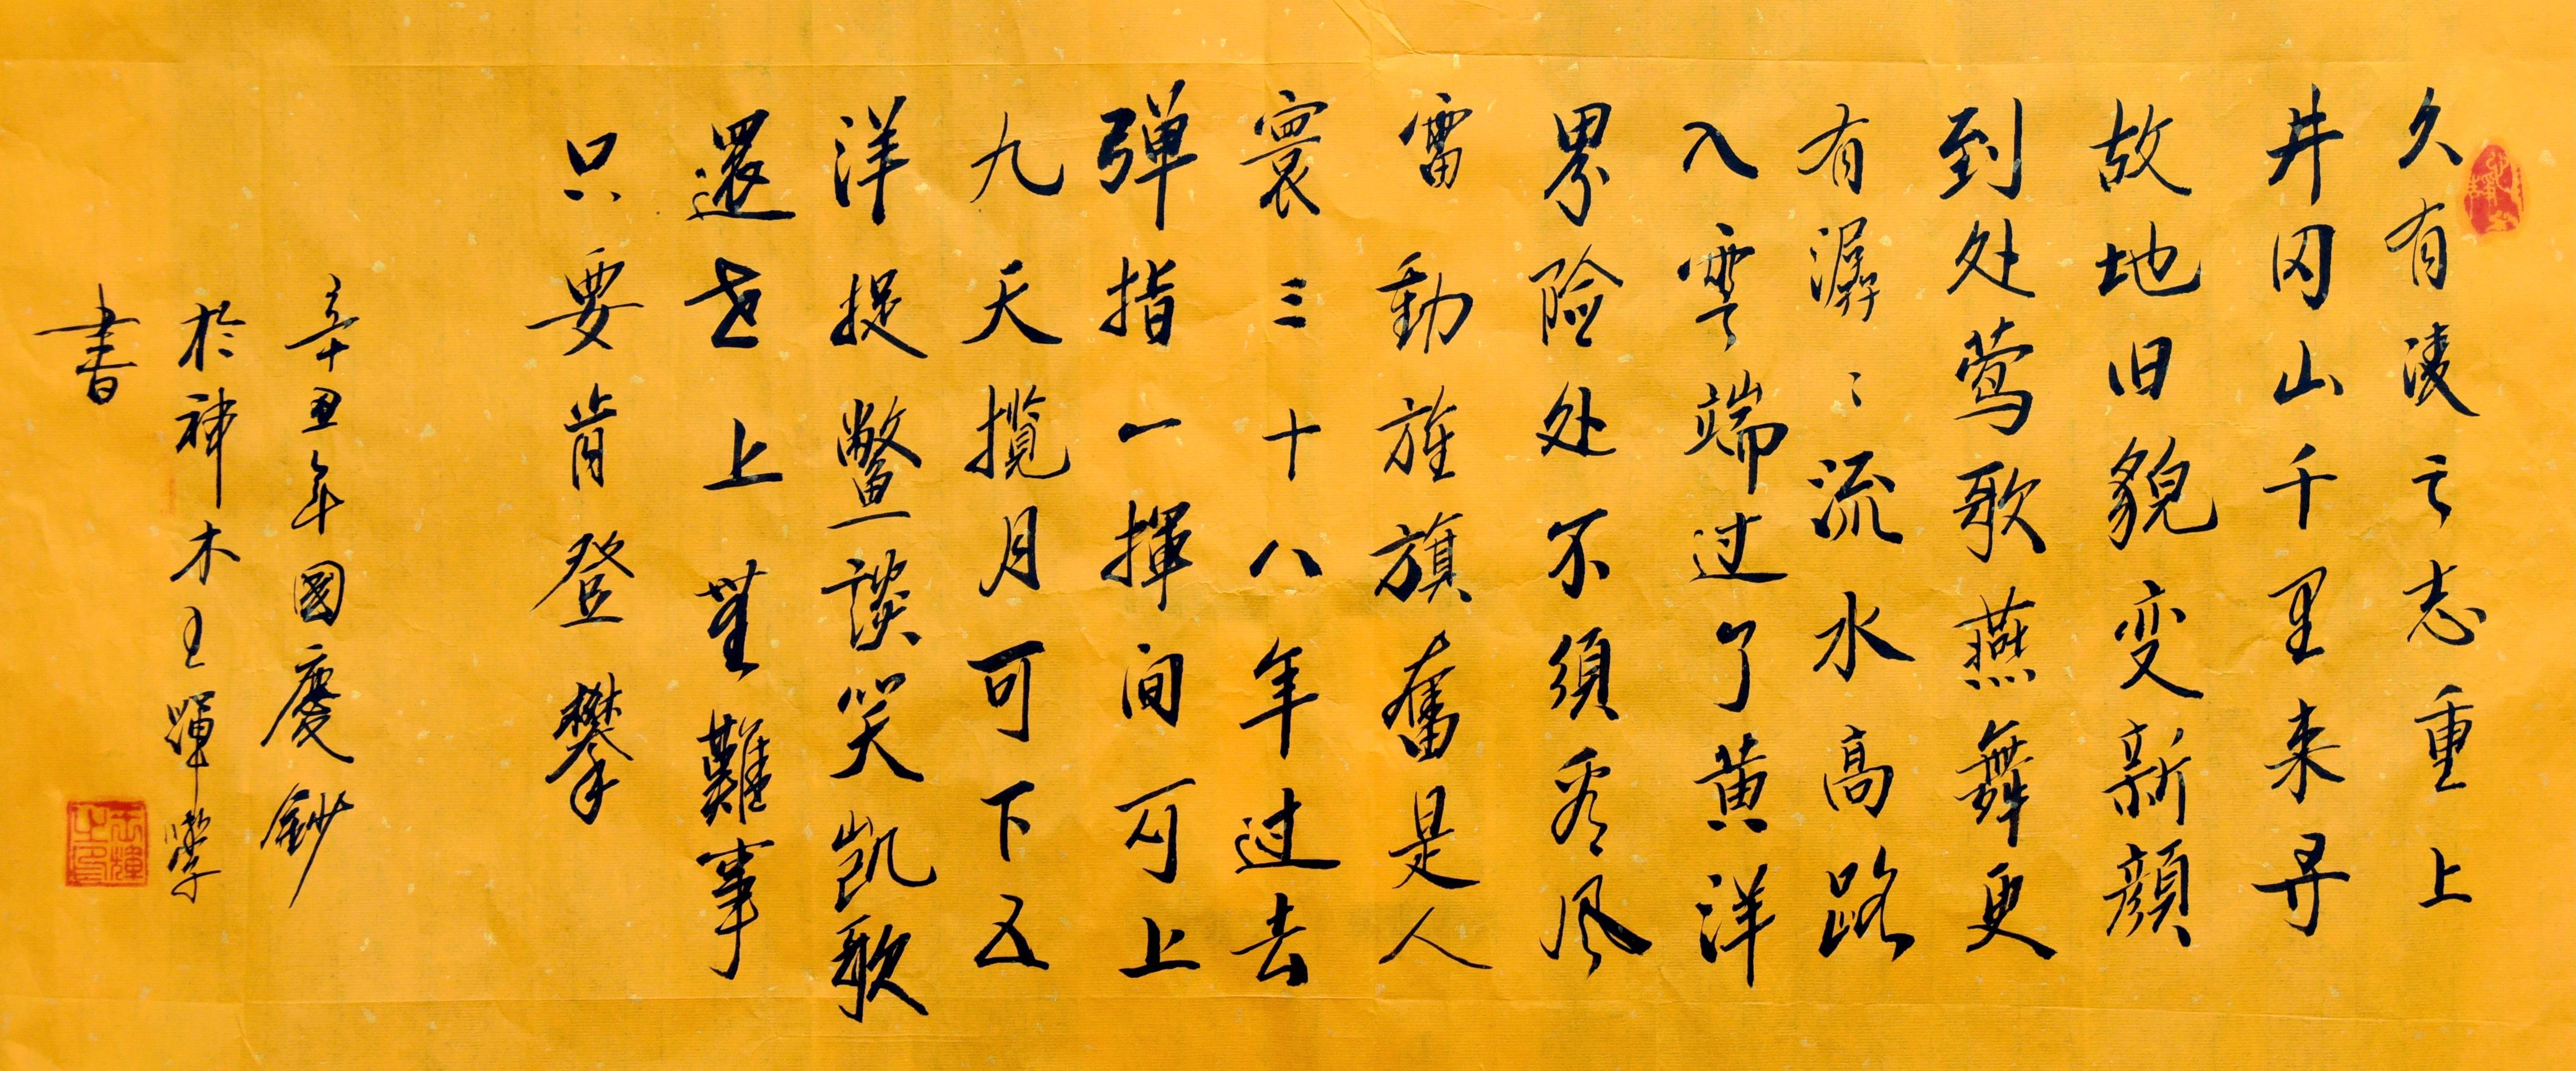 久有凌云志重上
井冈山千里来寻
故地旧貌变新顔
到处莺歌燕舞更
有潺〻流水高路
入雲端过了黄洋
界险处不須看风
雷動旌旗奮是人
寰三十八年过去
弹指一揮间可上
九天揽月可下五
洋捉鳖談笑凯歌
還世上無難事
只要肯登攀
辛丑年國慶鈔
於神木王輝學
書
王輝之印